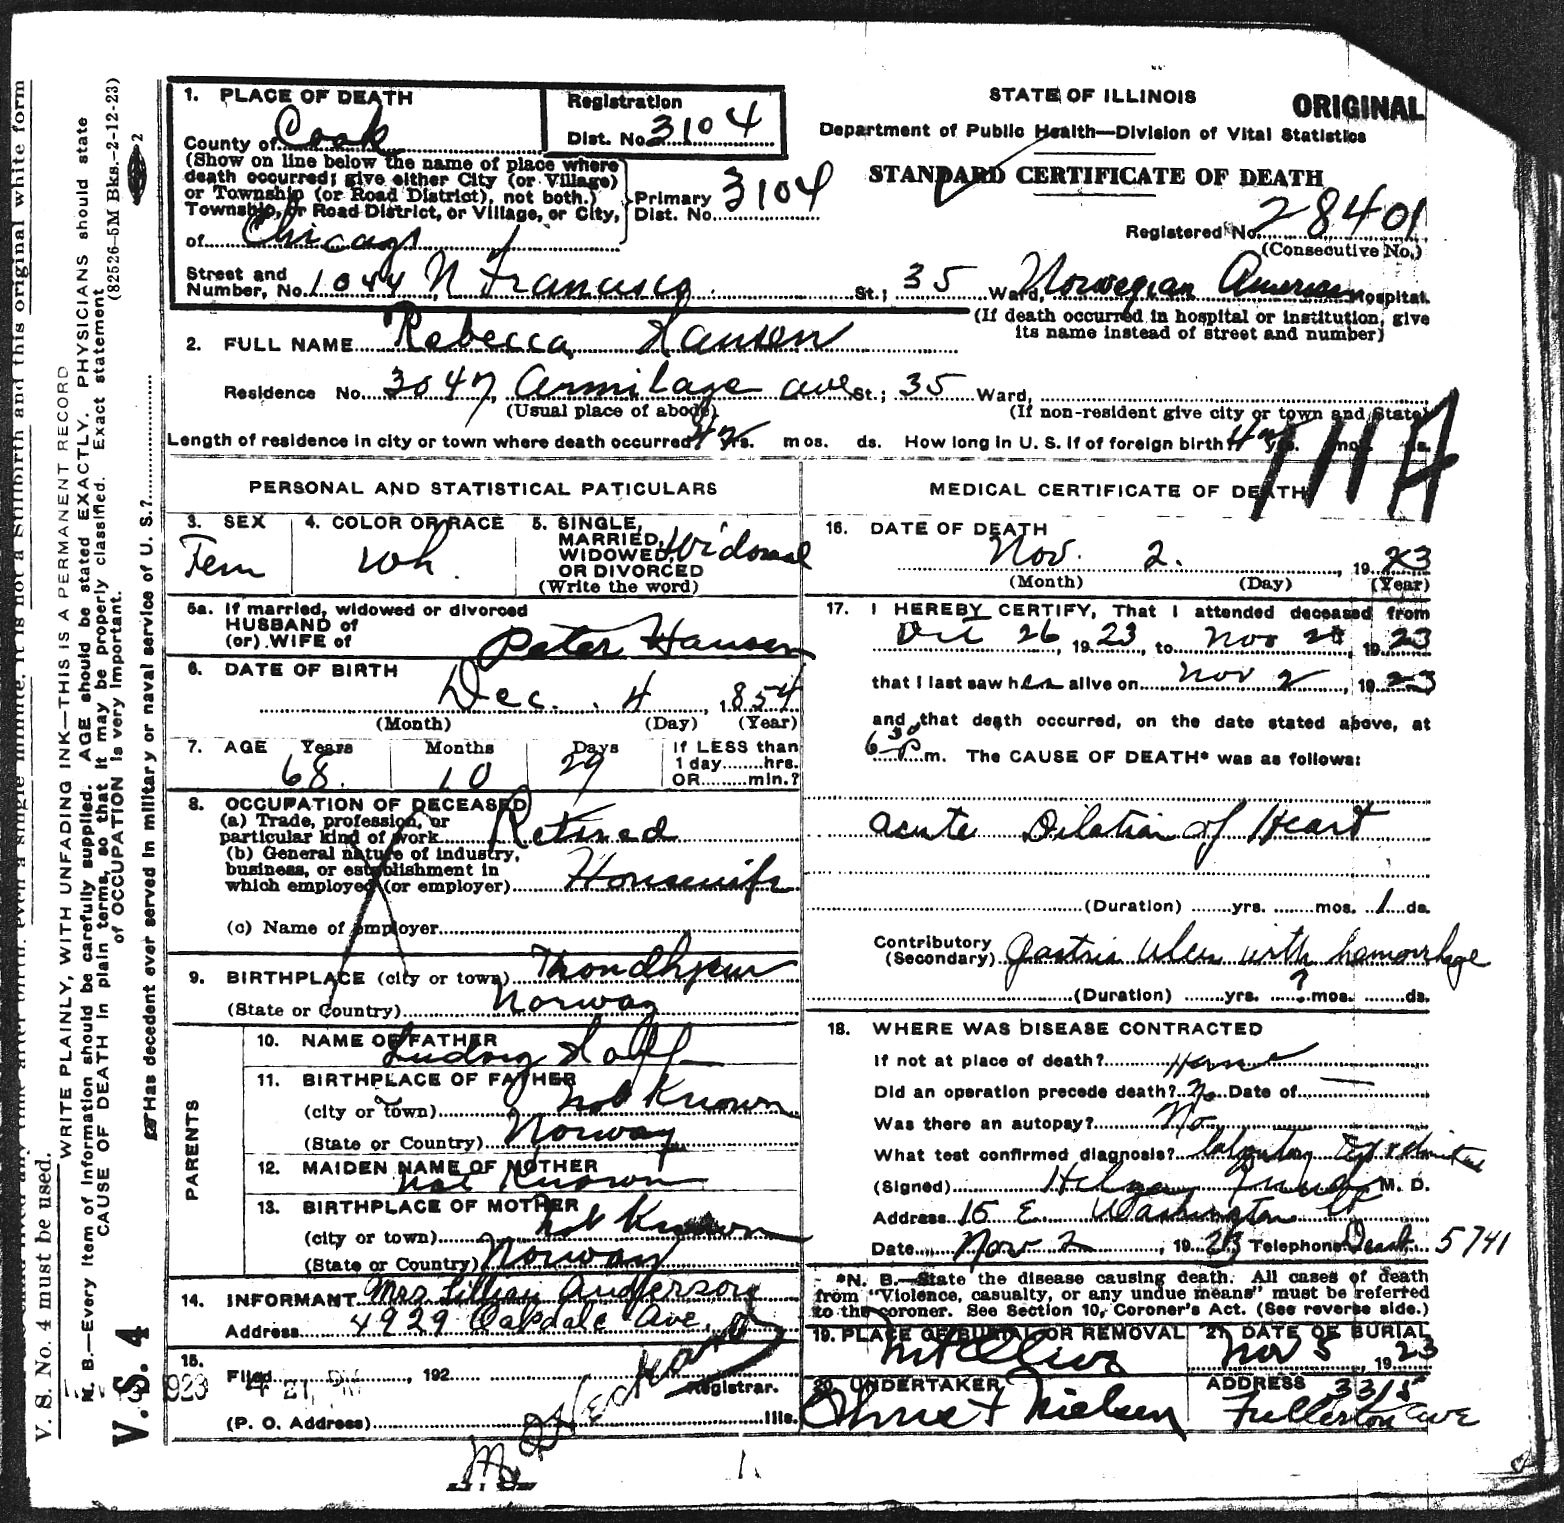 STATE OF ILLINOIS
ORIGINAL
Department of Public Health—Division of Vital Statistics
STANDARD CERTIFICATE OF DEATH
Registered No. 28401
(Consecutive No.)
1. PLACE OF DEATH
County of Cook
Registration
Dist. No. 3104
(Show on line below the name of place where
death occurred; give either City (or Village)
or Township (or Road District), not both.)
Township, or Road District, or Village, or City,
Primary
Dist. No. 3104
of Chicago
Street and
Number, No. 1044 N Francisco St.; 35 Ward, Norwegian American Hospital.
(If death occurred in hospital or institution, give
its name instead of street and number)
2. FULL NAME Rebecca Hansen
Residence No. 3047 Armitage ave St.; 35 Ward,
(Usual place of abode)
(If non-resident give city or town and State)
Length of residence in city or town where death occurred yrs. mos. ds. How long in U. S. if of foreign birth? yrs. mos. ds.
PERSONAL AND STATISTICAL PATICULARS
3. SEX
Fem
4. COLOR OR RACE
Wh.
5. SINGLE,
MARRIED,
WIDOWED,
OR DIVORCED
(Write the word)
Widowed
5a. If married, widowed or divorced
HUSBAND of
(or) WIFE of Peter Hansen
6. DATE OF BIRTH
Dec. 4, 1854
(Month) (Day) (Year)
7. AGE Years Months Days
68 10 29
If LESS than
1 day........hrs.
OR........min.?
8. OCCUPATION OF DECEASED
(a) Trade, profession, or
particular kind of work Retired
(b) General nature of industry,
business, or establishment in
which employed (or employer) Housewife
(c) Name of employer
9. BIRTHPLACE (city or town) Trondhjem
(State or Country) Norway
PARENTS
10. NAME OF FATHER
Ludvig
11. BIRTHPLACE OF FATHER
(city or town) not Known
(State or Country) Norway
12. MAIDEN NAME OF MOTHER
not Known
13. BIRTHPLACE OF MOTHER
(city or town) not Known
(State or Country) Norway
14. INFORMANT Mrs Lillian Anderson
Address 4929 Oakdale Ave.
15.
Filed , 192
Registrar.
(P. O. Address) Ills.
MEDICAL CERTIFICATE OF DEATH
16. DATE OF DEATH
Nov. 2. , 1923
(Month) (Day) (Year)
17. I HEREBY CERTIFY, That I attended deceased from
26, 1923, to Nov 2, 1923
that I last saw her alive on Nov 2, 1923
and that death occurred, on the date stated above, at
6 30 P m. The CAUSE OF DEATH* was as follows:
acute Dilation of Heart
(Duration) yrs. mos. 1 ds.
Contributory
(Secondary) gastric ulcer with hemorrhage
(Duration) yrs. ? mos. ds.
18. WHERE WAS DISEASE CONTRACTED
If not at place of death? Home
Did an operation precede death? No Date of —
Was there an autopsy? No
What test confirmed diagnosis?
(Signed) Helga M. D.
Address 15 E Washington St
Date Nov 2, 1923 Telephone Dearb. 5741
*N. B.—State the disease causing death. All cases of death
from "Violence, casualty, or any undue means" must be referred
to the coroner. See Section 10, Coroner's Act. (See reverse side.)
19. PLACE OF BURIAL OR REMOVAL
Mt Olive
21. DATE OF BURIAL
Nov 5, 1923
20. UNDERTAKER
Nielsen
ADDRESS 3315
Fullerton ave
V. S. No. 4 must be used.
WRITE PLAINLY, WITH UNFADING INK—THIS IS A PERMANENT RECORD
N. B.—Every item of information should be carefully supplied. AGE should be stated EXACTLY. PHYSICIANS should state
CAUSE OF DEATH in plain terms, so that it may be properly classified. Exact statement
of OCCUPATION is very important.
(82526—5M Bks.—2-12-23)
2
V. S. 4
Has decedent ever served in military or naval service of U. S.?